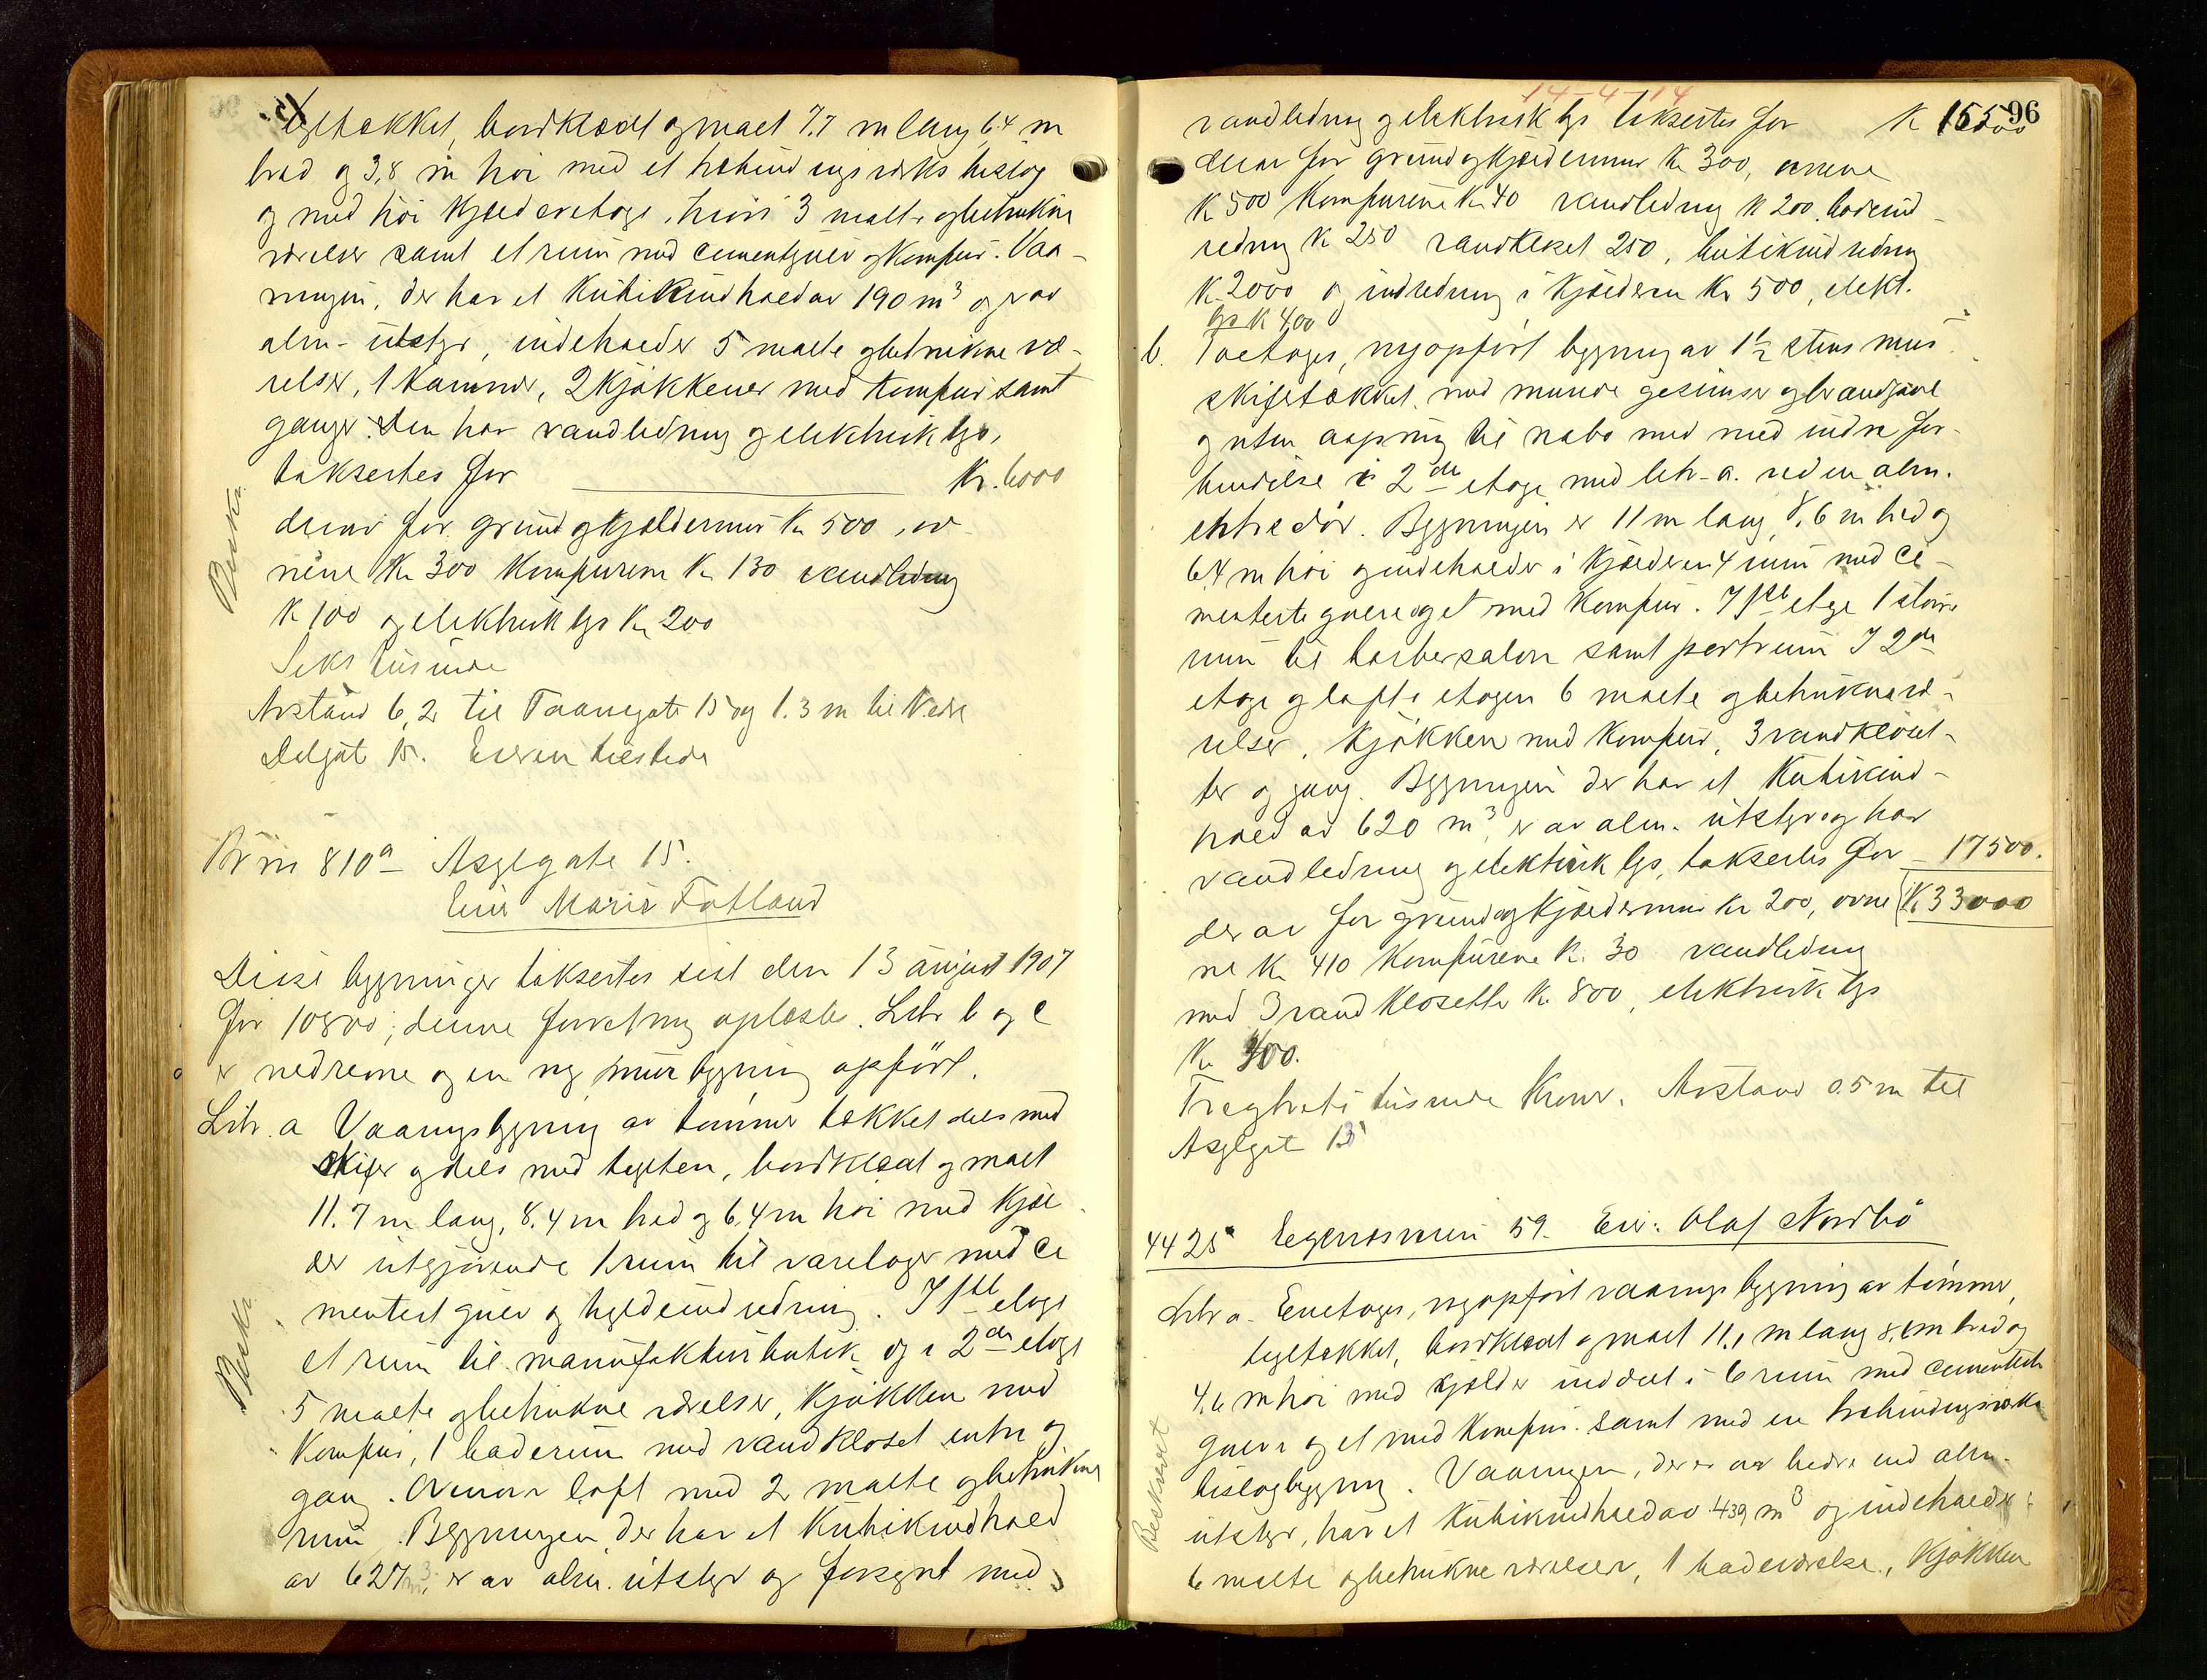 tegltækket, bordklædt og malt 7,7 m lang 6,4 m
bred og 3,8 m høi med et trebindingsverks bislag
og med høi kjælderetage, hvori 3 malte og betrukne
værelser samt et rum med cementgulv og komfur. Vaa-
ningen, der har et kubikindhold av 190 m³ og er av
alm. utstyr, indeholder 5 malte og betrukne væ-
relser, 1 kammer, 2 kjøkkener med komfur samt
ganger. Den har vandledning og elektrisk lys,
taksertes for Kr. 6000
derav for grund og kjældermur Kr 500, ov-
nene Kr 300 Komfurene Kr 130 vandledning
Kr 100 og elektrisk lys Kr 200
Seks tusinde
Avstand 6,2 til Taarngate 15 og 1.3 m til Nedre
Dalgat 15. Eieren tilstede
Br nr 810a Asylgate 15.
Eier Marie Fatland
Disse bygninger taksertes sist den 13 august 1907
for 10800; denne forretning oplæstes. Litr b og c
er nedrevne og en ny murbygning opført.
Litr. a Vaaningsbygning av tømmer tækket dels med
skifer og dels med teglsten, bordklædt og malt
11.7 m lang, 8.4 m bred og 6.4 m høi med kjæl-
der utgjørende 1 rum til varelager med ce
mentert gulv og hyldeindredning. I 1ste etage
et rum til manufakturbutik og i 2den etage
5 malte og betrukne værelser, kjøkken med
komfur, 1 baderum med vandkloset entre og
gang. Ovenover loft med 2 malte og betrukne
rum. Bygningen, der har et kubikindhold
av 627 m³, er av alm. utstyr og forsynt med
Beskr.
Beskr.
14-4-14
96
vandledning og elektrisk lys taksertes for Kr 15500
derav for grund og kjældermur Kr 300, ovnene
Kr 500 Komfurene Kr 40 vandledning Kr 200. badeind-
redning Kr 250 vandkloset 250, butikindredning
Kr 2000 og indredning i kjælderen Kr 500, elekt.
lys Kr 400
b. Toetages, nyopført bygning av 1½ stens mur
skifertækket med murede gesimser og brandgavl
og uten aapning til nabo men med indre for-
bindelse i 2den etage med litr. a. ved en alm.
entredør. Bygningen er 11 m lang, 8,6 m bred og
6,4 m høi og indeholder i kjælderen 4 rum med ce-
menterte gulve og et med komfur. I 1ste etage 1 større
rum til barbersalon samt portrum I 2den
etage og loftsetagen 6 malte og betrukne væ-
relser, kjøkken med komfur, 3 vandkloset-
ter og gang. Bygningen der har et kubikind-
hold av 620 m³, er av alm. utstyr og har
vandledning og elektrisk lys, taksertes for 17500.
derav for grund og kjældermur Kr 200, ovne Kr 33000
ne Kr 410 Komfurene Kr. 30 vandledning
med 3 vandklosetter Kr. 800, elektrisk lys
Kr 400.
Tregtreti tusinde kroner. Avstand 0.5 m til
Asylgat 13
4425 Egenæsveien 59. Eier: Olaf Nordbø
Litr a. Enetages, nyopført vaaningsbygning av tømmer,
tegltækket, bordklædt og malt 11,1 m lang 8,6 m bred og
4,6 m høi med kjælder inddelt i 6 rum med cementerte
gulve og et med komfur. samt med en trebindingsverks
bislagbygning. Vaaningen, der er av bedre end alm.
utstyr, har et kubikindhold av 439 m³ og indeholder:
6 malte og betrukne værelser, 1 badeværelse, kjøkken
Beskrevet